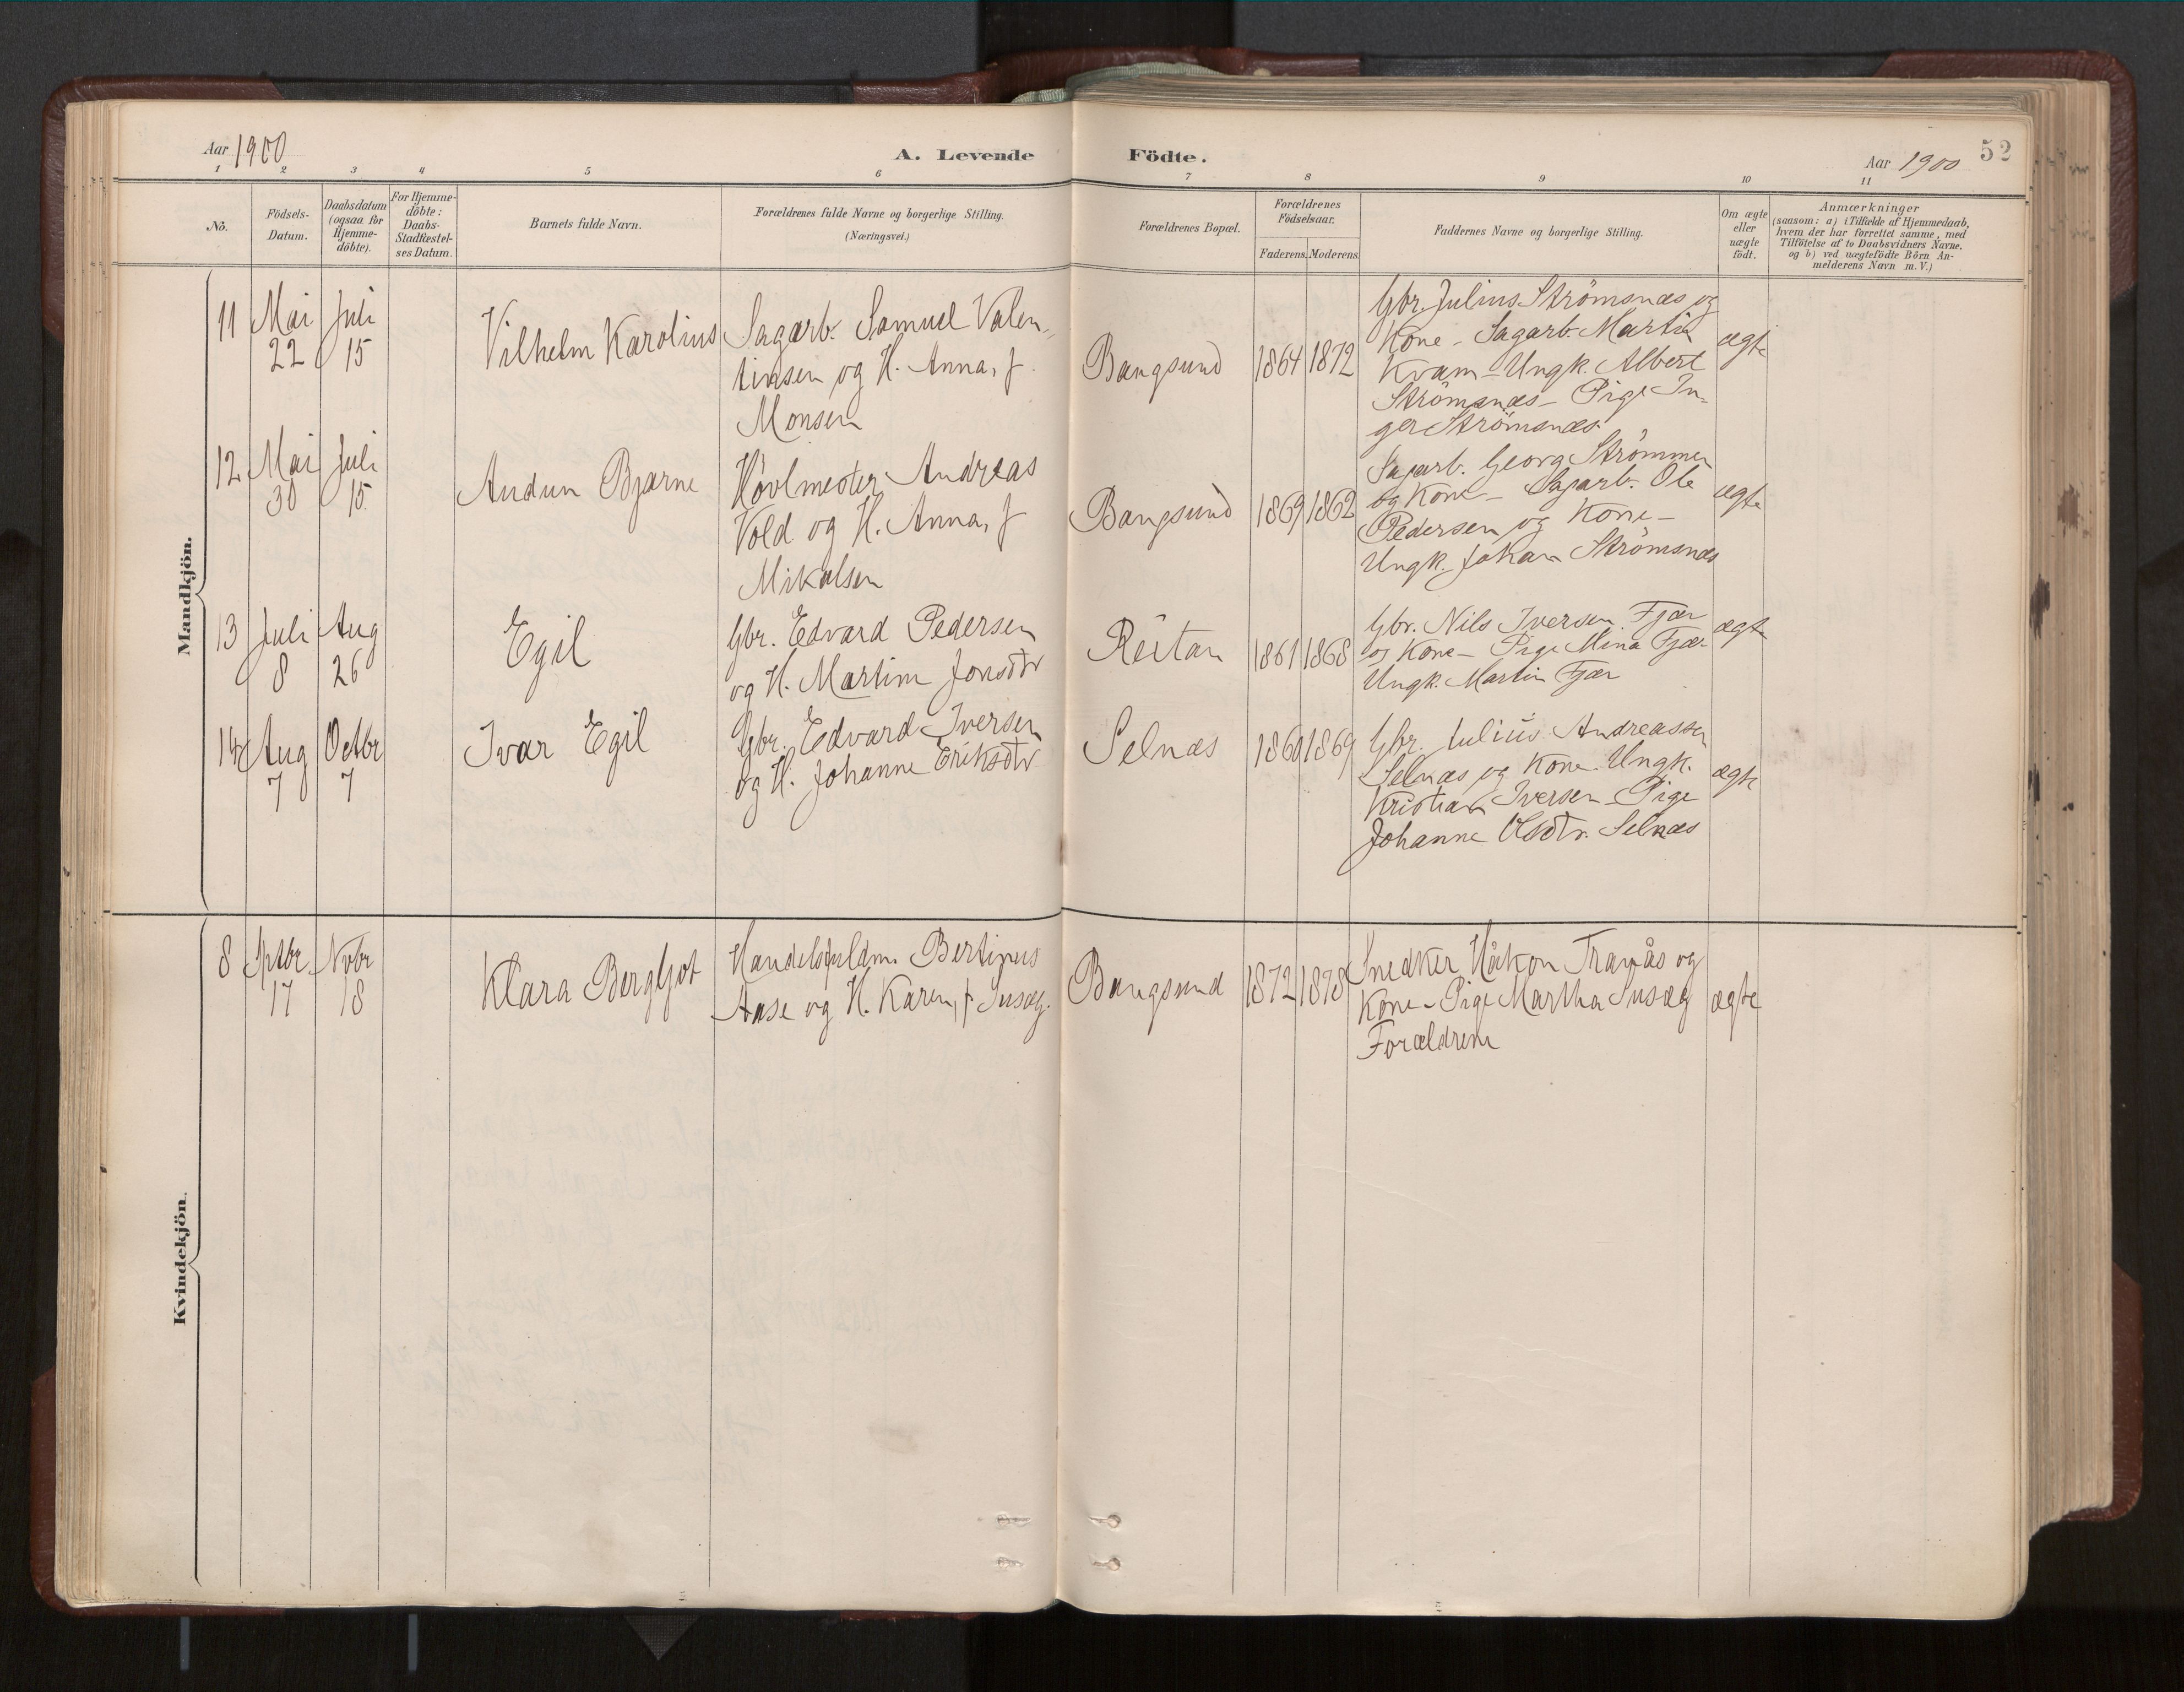 Aar 1900
A. Levende Födte.
Aar 1900
52
1 2 3 4 5 6 7 8 9 10 11
No.
Födsels-
Datum.
Daabsdatum
(ogsaa for
Hjemme-
döbte).
For Hjemme-
döbte:
Daabs-
Stadfæstel-
ses Datum.
Barnets fulde Navn.
Forældrenes fulde Navne og borgerlige Stilling.
(Næringsvei.)
Forældrenes Bopæl.
Forældrenes
Födselsaar.
Faderens. Moderens.
Faddernes Navne og borgerlige Stilling.
Om ægte
eller
uægte
födt.
Anmærkninger
(saasom: a) i Tilfælde af Hjemmedaab,
hvem der har forrettet samme, med
Tilföielse af to Daabsvidners Navne.
og b) ved uægtefödte Börn An-
melderens Navn m. V.)
Mandkjön.
11
Mai
22
Juli
15
Vilhelm Karolius
Sagarb. Samuel Valen-
tinsen og H. Anna, f.
Monsen
Bangsund
1864
1872
Gbr. Julius Strömsnæs og
Kone - Sagarb. Martin
Kvam - Ungk. Albert
Strömsnæs - Pige In-
ger Strömsnæs
ægte
12
Mai
30
Juli
15
Audun Bjarne
Hövlmester Andreas
Vold og H. Anna, f
Mikalsen
Bangsund
1869
1862
Sagarb. Georg Strömmen
og Kone - Sagarb. Ole
Pedersen og Kone -
Ungk. Johan Strömsnæs
ægte
13
Juli
8
Aug
26
Egil
Gbr. Edvard Pedersen
og H. Martine Jonsdtr
Reitan
1861
1868
Gbr. Nils Iversen Fjær
og Kone - Pige Mina Fjær
Ungk. Martin Fjær
ægte
14
Aug
7
Octbr
7
Ivar Egil
Gbr. Edvard Iversen
og H. Johanne Eriksdtr
Selnæs
1860
1869
Gbr. Julius Andreassen
Selnæs og Kone. Ungk.
Kristian Iversen - Pige
Johanne Olsdtr. Selnæs
ægte
Kvindekjön.
8
Sptbr
17
Nvbr
18
Klara Bergljot
Handelsfuldm. Bertinus
Aase og H. Karen, f Susæg.
Bangsund
1872
1878
Snedker Håkon Tranås og
Kone - Pige Martha Susæg
Forældrene
ægte